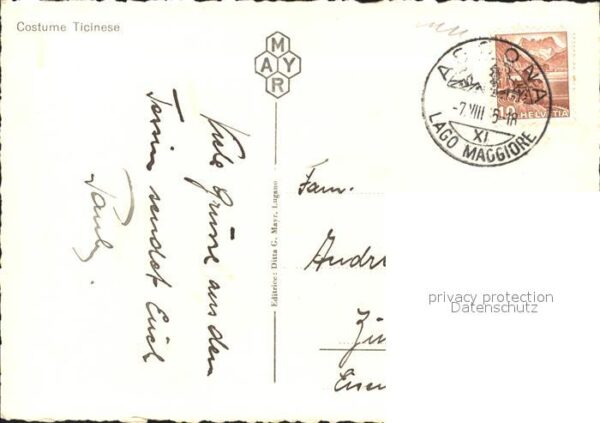 Costume Ticinese
MAYR
ASCONA
-7.VIII 5-18
XI
LAGO MAGGIORE
10 HELVETIA
Viele Grüsse aus dem
Tessin sendet Euch
Editrice: Ditta G. Mayr, Lugano
Fam.
Andr
Zü
privacy protection
Datenschutz